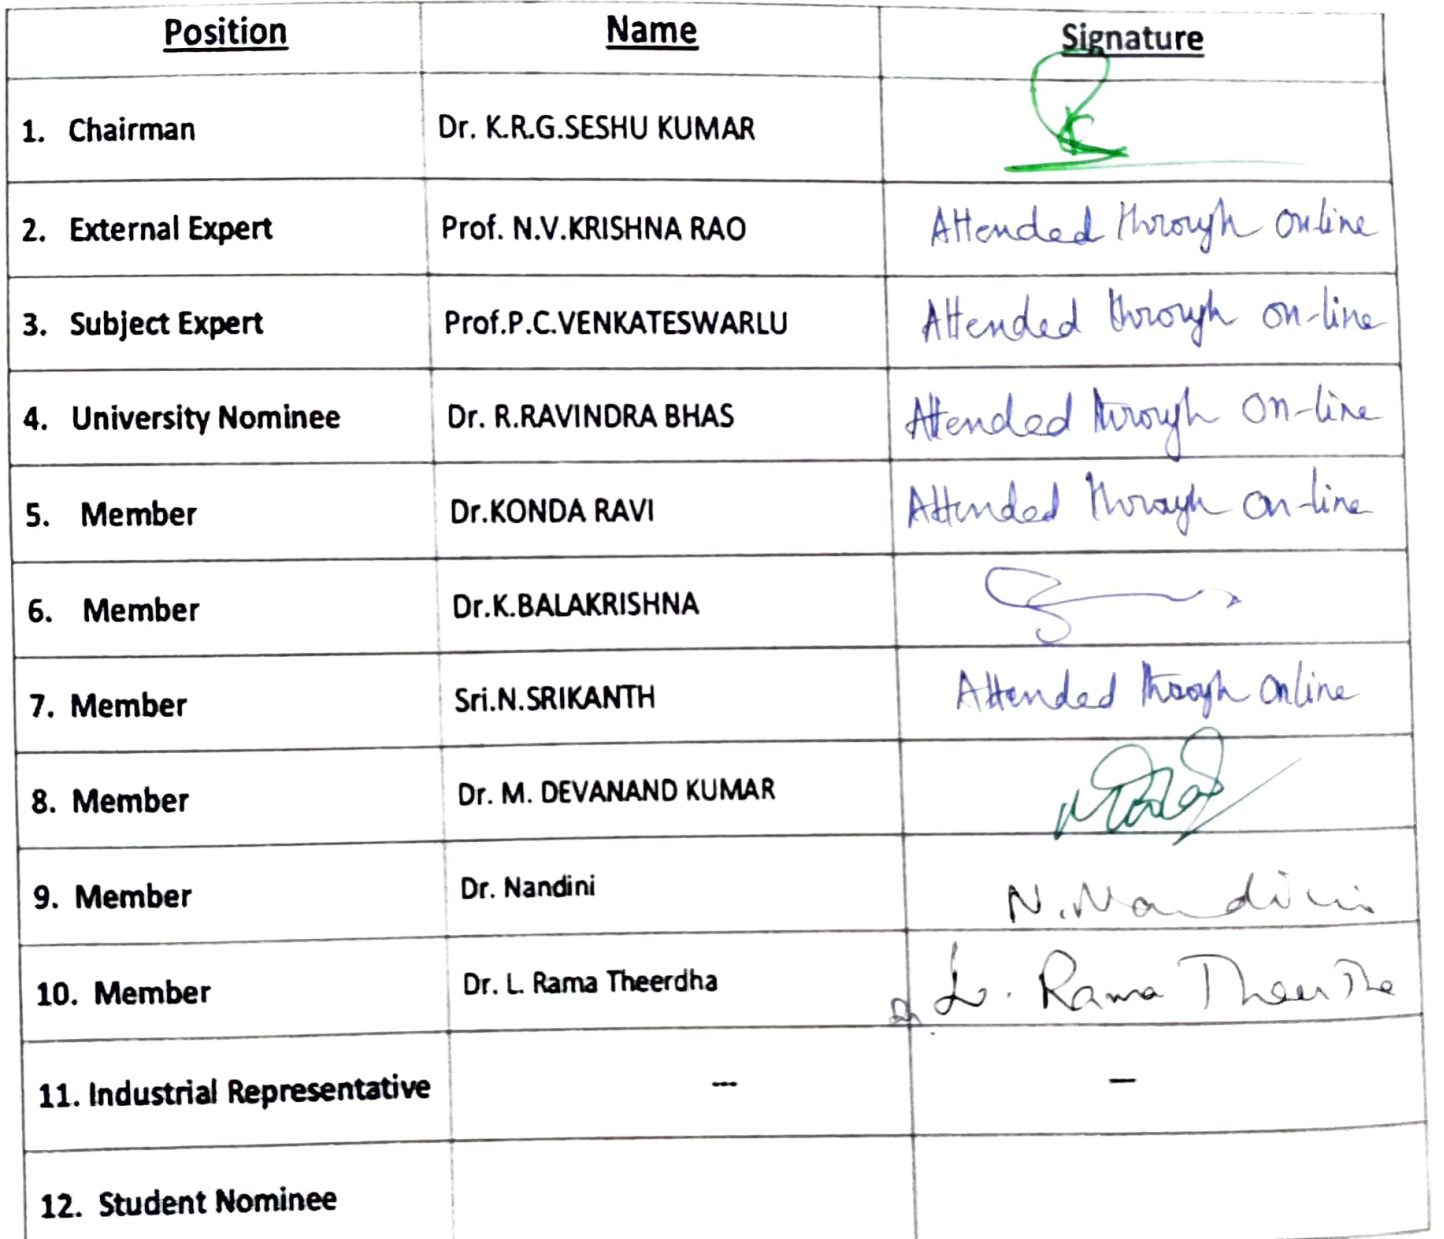 Position Name Signature
1. Chairman Dr. K.R.G.SESHU KUMAR
2. External Expert Prof. N.V.KRISHNA RAO Attended through online
3. Subject Expert Prof.P.C.VENKATESWARLU Attended through on-line
4. University Nominee Dr. R.RAVINDRA BHAS Attended through on-line
5. Member Dr.KONDA RAVI Attended through on-line
6. Member Dr.K.BALAKRISHNA
7. Member Sri.N.SRIKANTH Attended through online
8. Member Dr. M. DEVANAND KUMAR
9. Member Dr. Nandini N. Nandini
10. Member Dr. L. Rama Theerdha Dr L. Rama Theertha
11. Industrial Representative --- —
12. Student Nominee